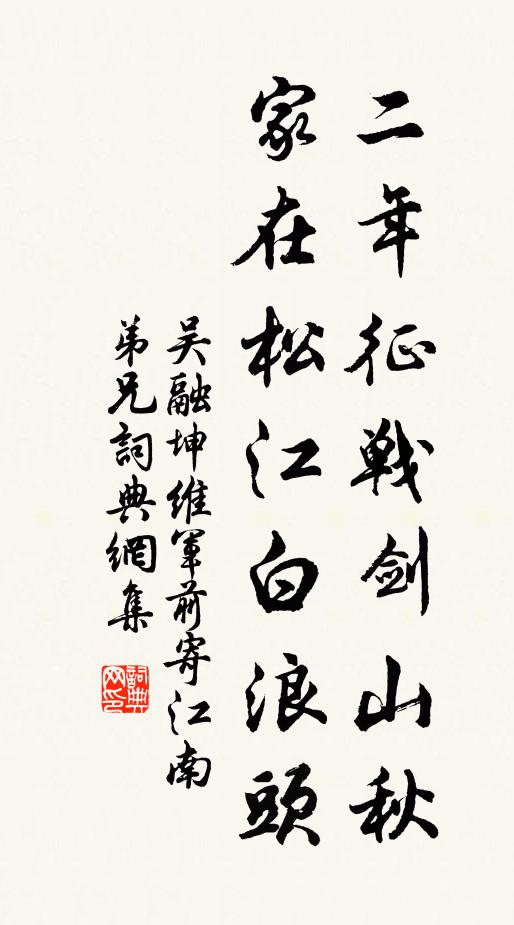 二年征戰剑山秋
家在松江白浪頭
吴融坤維軍前寄江南
弟兄詞典網集
詞典網印